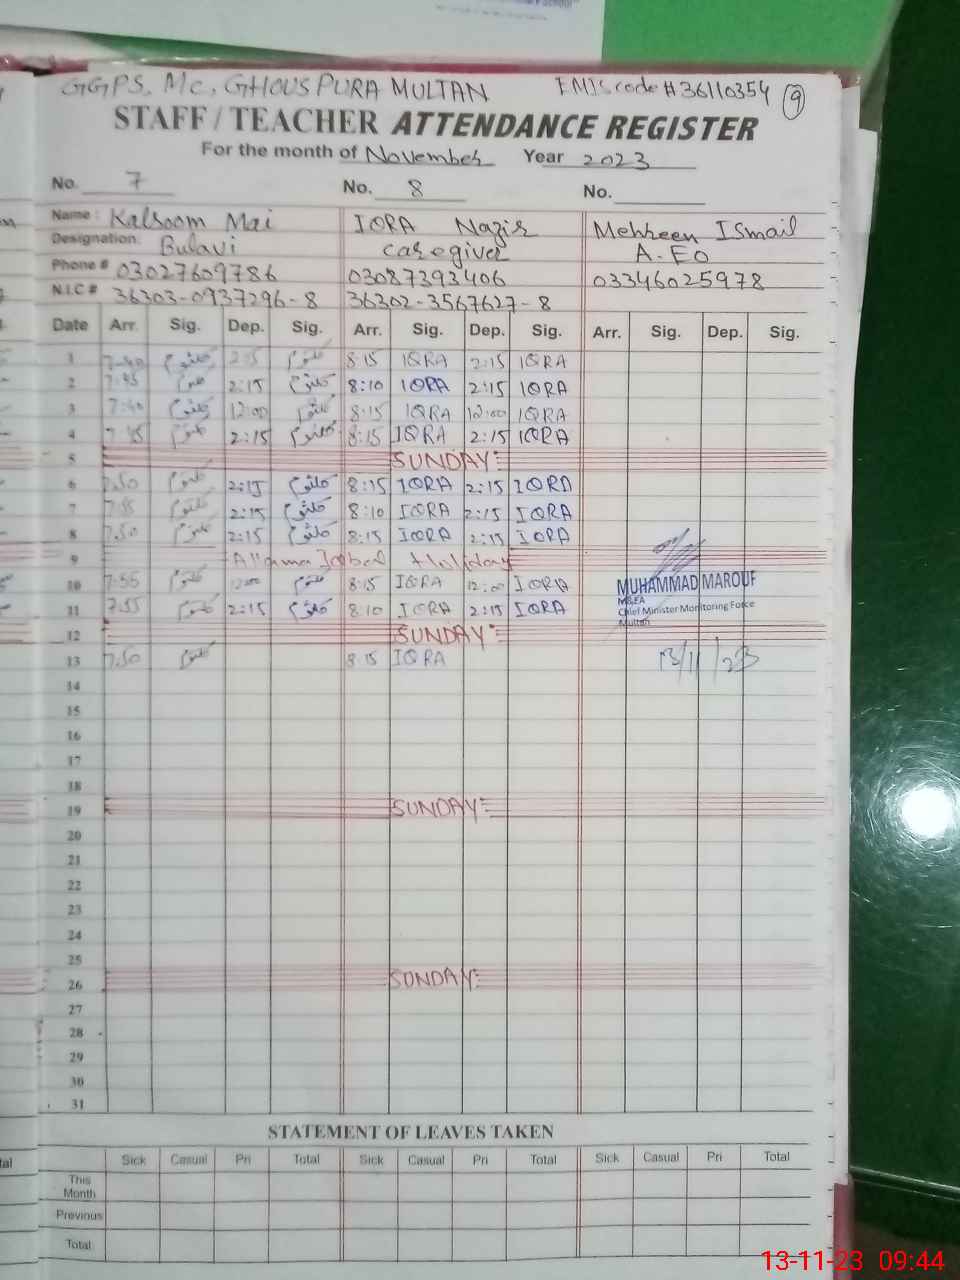 GGPS, Mc, GHOUS PURA MULTAN EMIS code # 36110354 9
STAFF / TEACHER ATTENDANCE REGISTER
For the month of November Year 2023
No. 7 No. 8 No.
Name: Kalsoom Mai IQRA Nazir Mehreen ISmail
Designation: Bulavi caregiver A.Eo
Phone # 03027609786 03087393406 03346025978
N.I.C # 36303-0937296-8 36302-3567627-8
Date Arr. Sig. Dep. Sig. Arr. Sig. Dep. Sig. Arr. Sig. Dep. Sig.
1 7-40 کلثوم 2:15 کلثوم 8:15 IQRA 2:15 IQRA
2 7:45 کلثوم 2:15 کلثوم 8:10 IQRA 2:15 IQRA
3 7:40 کلثوم 12:00 کلثوم 8:15 IQRA 12:00 IQRA
4 7:45 کلثوم 2:15 کلثوم 8:15 IQRA 2:15 IQRA
5 SUNDAY
6 7.50 کلثوم 2:15 کلثوم 8:15 IQRA 2:15 IQRA
7 7:55 کلثوم 2:15 کلثوم 8:10 IQRA 2:15 IQRA
8 7.50 کلثوم 2:15 کلثوم 8:15 IQRA 2:15 IQRA
9 Allama Iqbal Holiday
10 7:55 کلثوم 12:00 کلثوم 8:15 IQRA 12:00 IQRA
MUHAMMAD MAROUF
M&EA
11 7:55 کلثوم 2:15 کلثوم 8:10 IQRA 2:15 IQRA
Chief Minister Monitoring Force
Multan
12 SUNDAY
13 7.50 کلثوم 8:15 IQRA 13/11/23
14
15
16
17
18
19 SUNDAY
20
21
22
23
24
25
26 SUNDAY
27
28
29
30
31
STATEMENT OF LEAVES TAKEN
Sick Casual Pri Total Sick Casual Pri Total Sick Casual Pri Total
This Month
Previous
Total
13-11-23 09:44